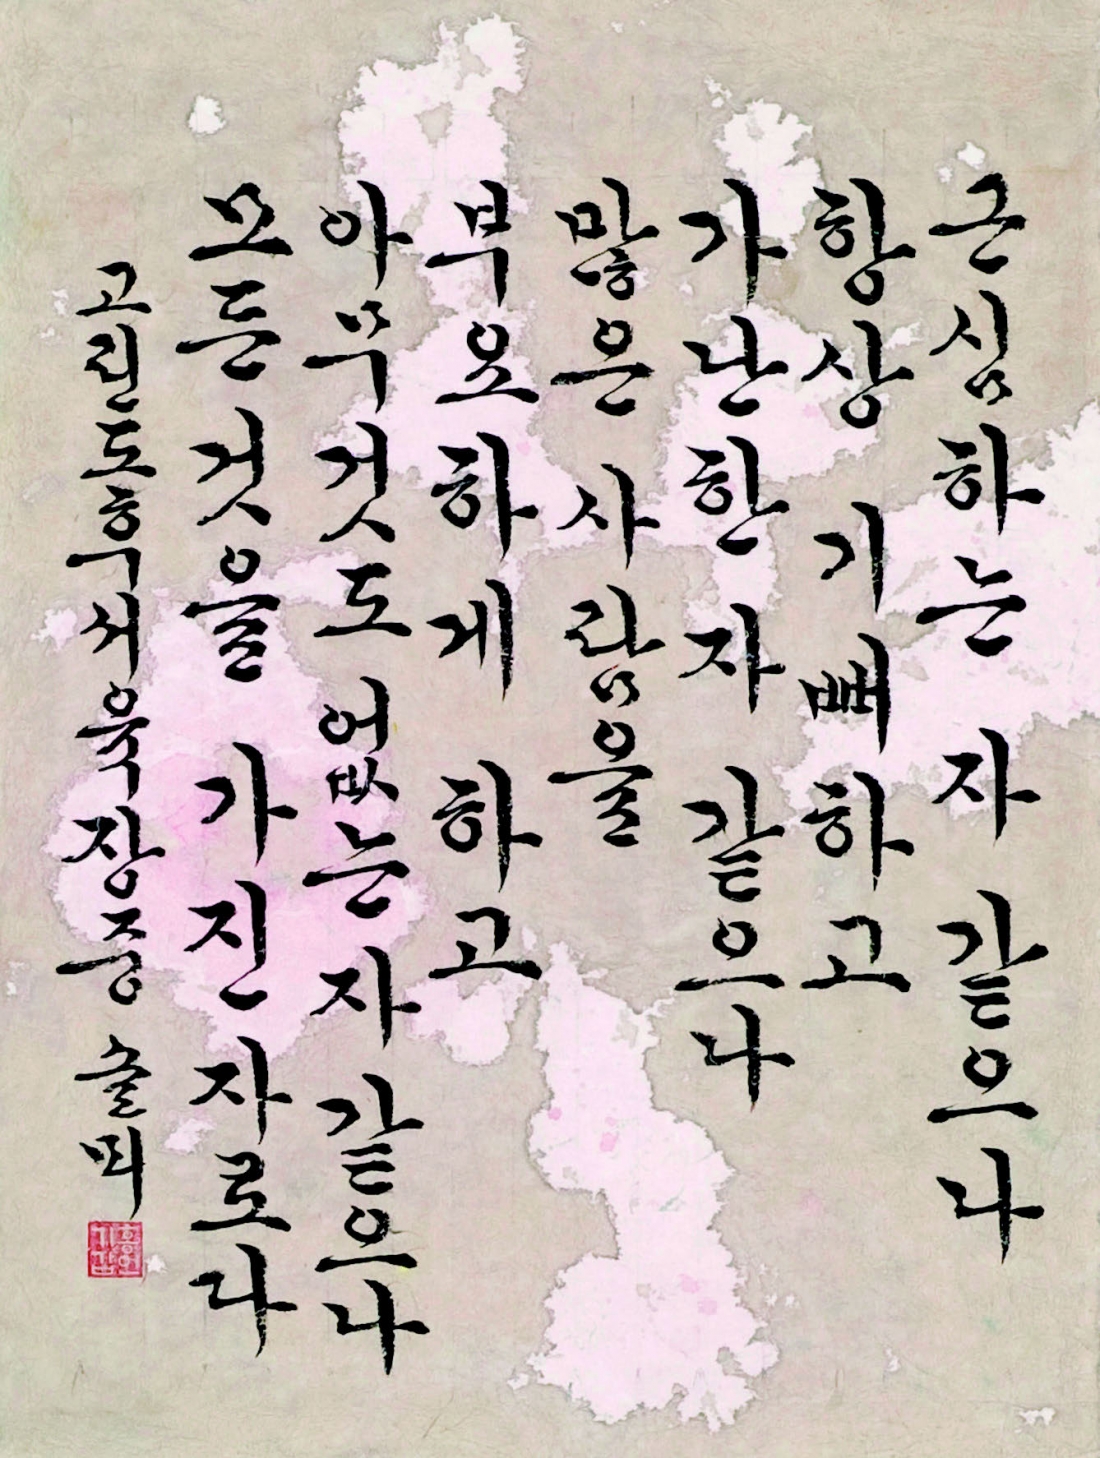 근심하는 자 같으나
항상 기뻐하고
가난한 자 같으나
많은 사람을
부요하게 하고
아무것도 없는 자 같으나
모든 것을 가진 자로다
고린도후서 육장중